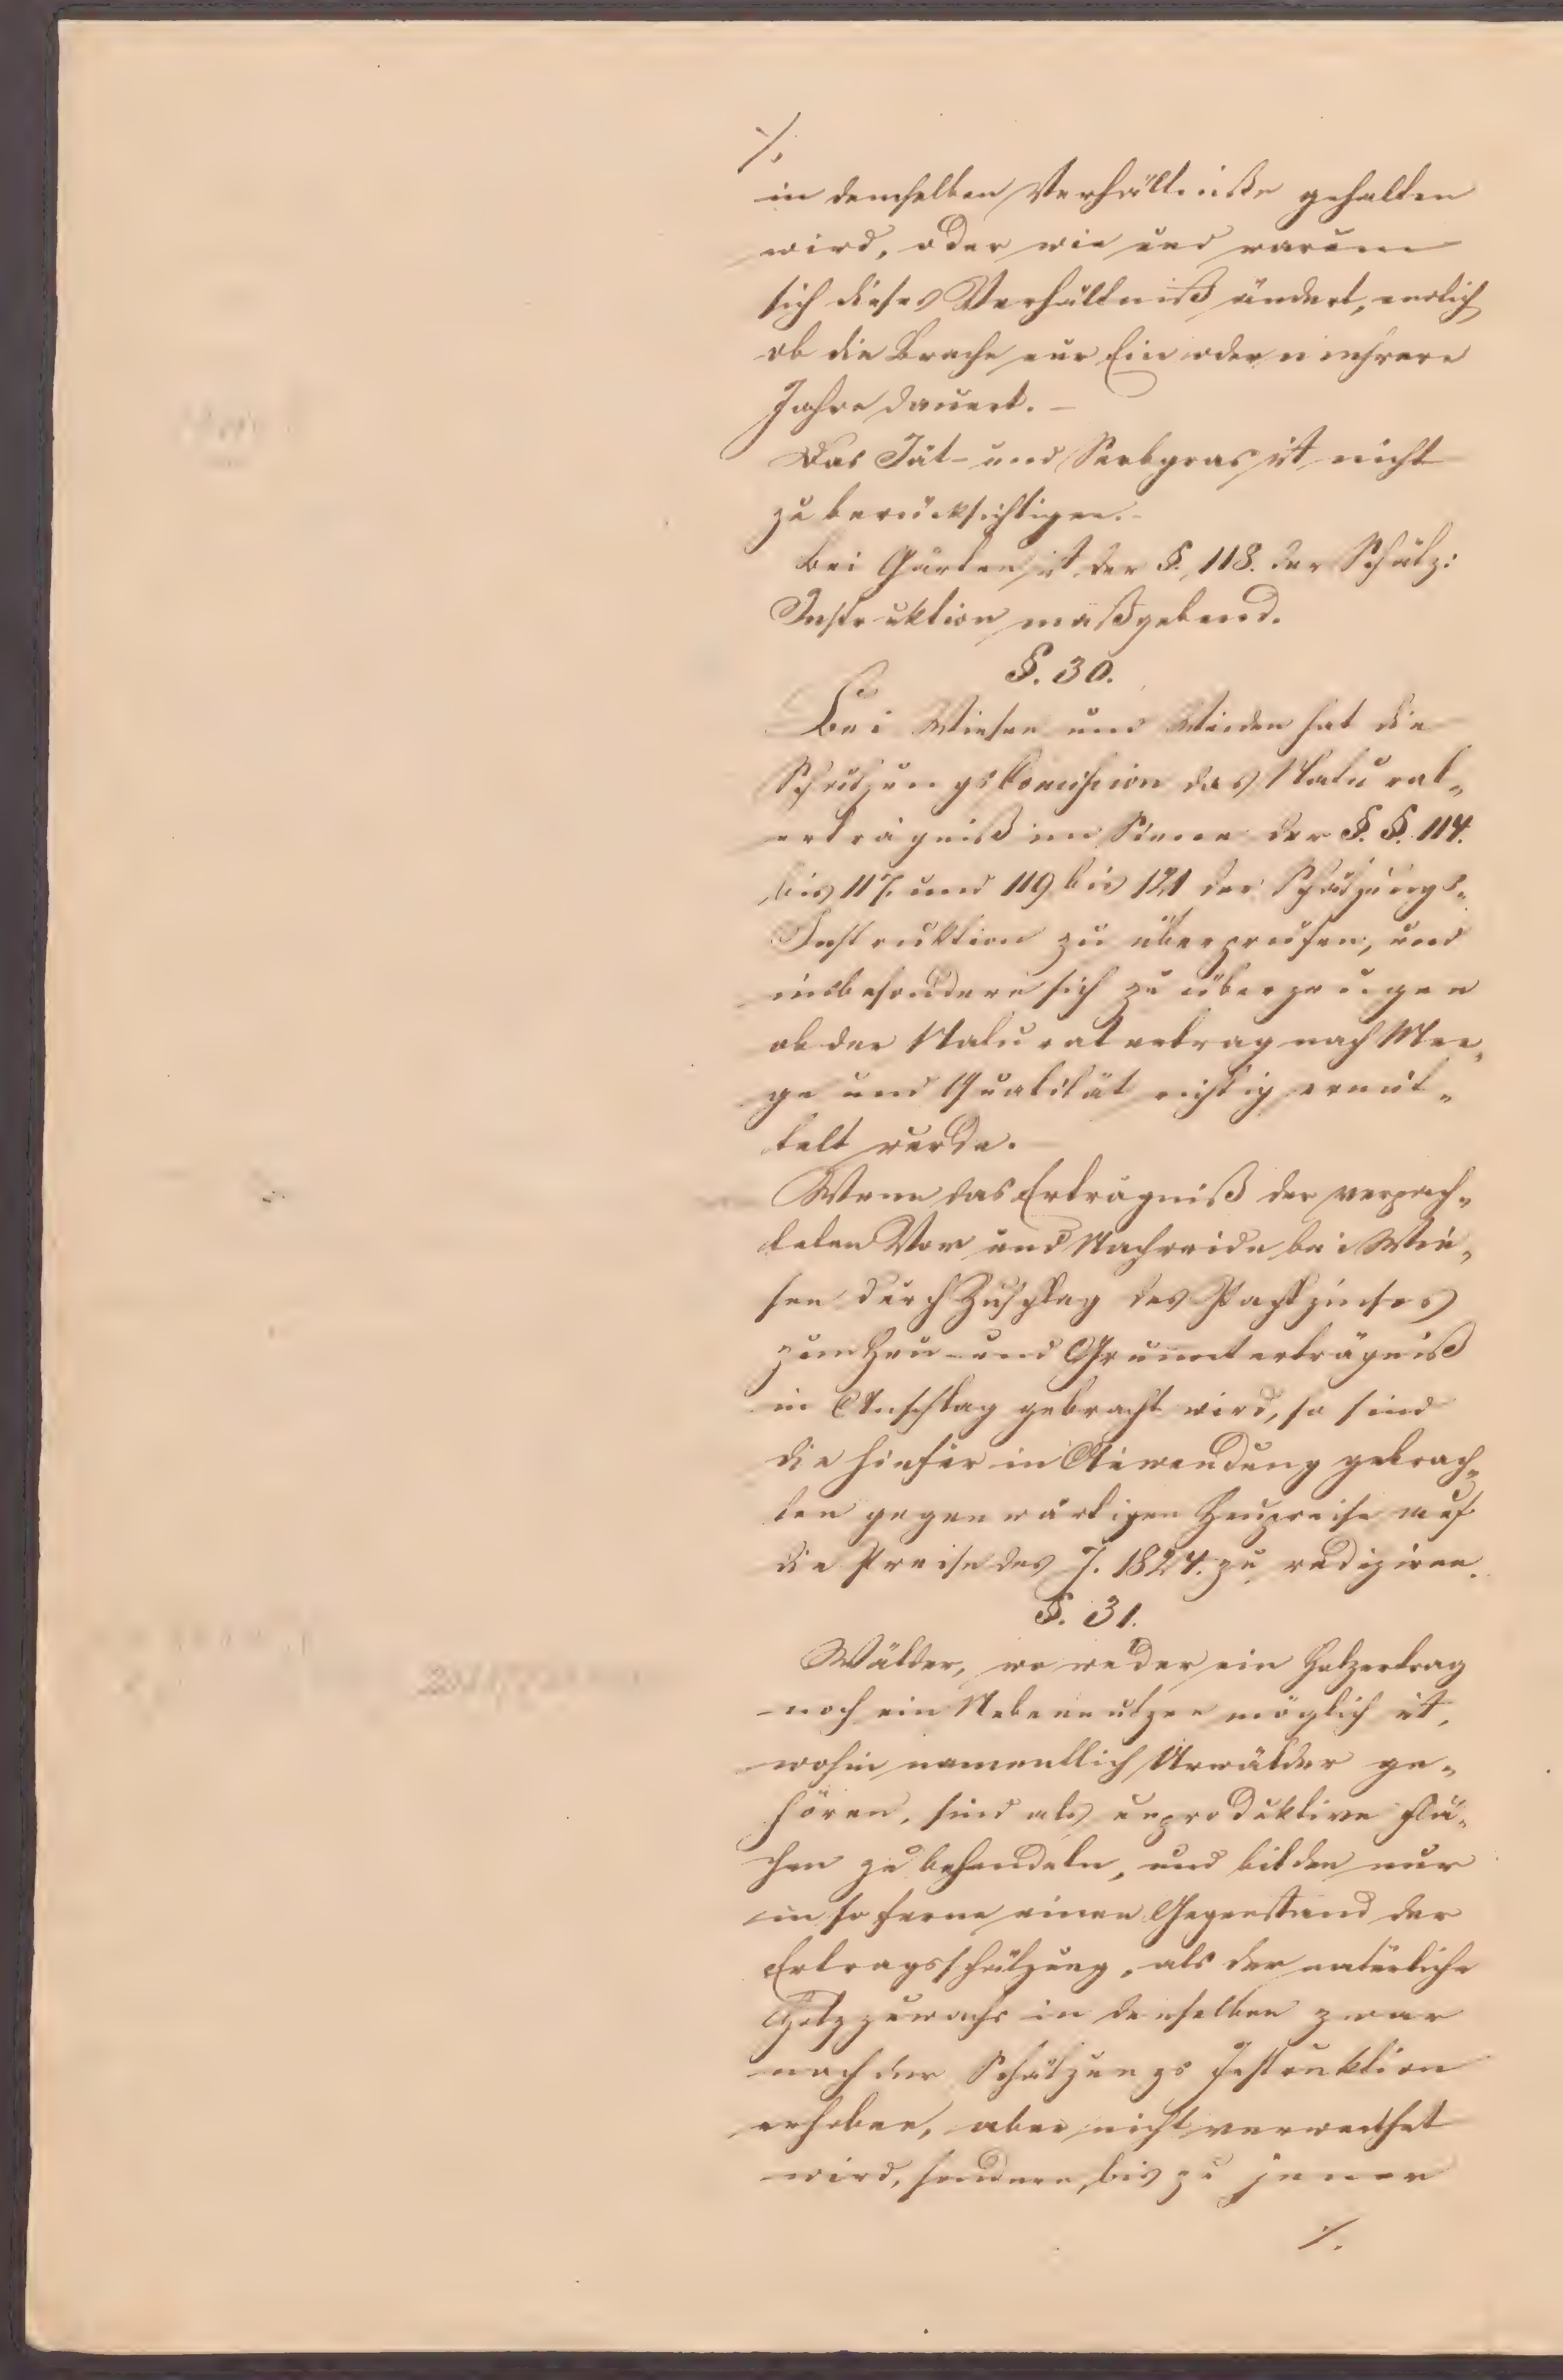 ./.
in demselben Verhältniße gehalten
wird, oder wie und warum
sich dieses Verhältniß ändert, endlich
ob die Brache nur Ein oder mehrere
Jahre dauert. –
Das Jät- und  ist nicht
zu berücksichtigen. –
Bei Gärten ist der §. 118. der Schätz:
Instruktion maßgebend.
§. 30.
Bei Wiesen und Weiden hat die
Schätzungs Commission das Natural„
erträgniß im Sinne der §. §. 114.
bis 117. und 119 bis 121 der Schätzungs„
Instruktion zu überprüfen, und
insbesondere sich zu überzeugen
ob der Naturalertrag nach Men„
ge und Qualität richtig ermit„
telt wurde. –
Wenn das Erträgniß der verpach„
teten Vor und Nachweide bei Wie„
sen durch Zuschlag des Pachtzinses
zum Heu- und Grummterträgniß
in Anschlag gebracht wird, so sind
die hiefür in Anwendung gebrach„
ten gegenwärtigen Heupreise auf
die Preise des J. 1824. zu reduziren.
§. 31.
Wälder, wo weder ein Holzertrag
noch ein Nebennutzen möglich ist,
wohin namentlich Urwälder ge„
hören, sind als unproduktive Flä„
chen zu behandeln, und bilden nur
in so ferne einen Gegenstand der
Ertragsschätzung, als der natürliche
Holzzuwachs in denselben zwar
nach der Schätzungs Instruktion
erhoben, aber nicht verwerthet
wird, sondern bis zu jener
./.